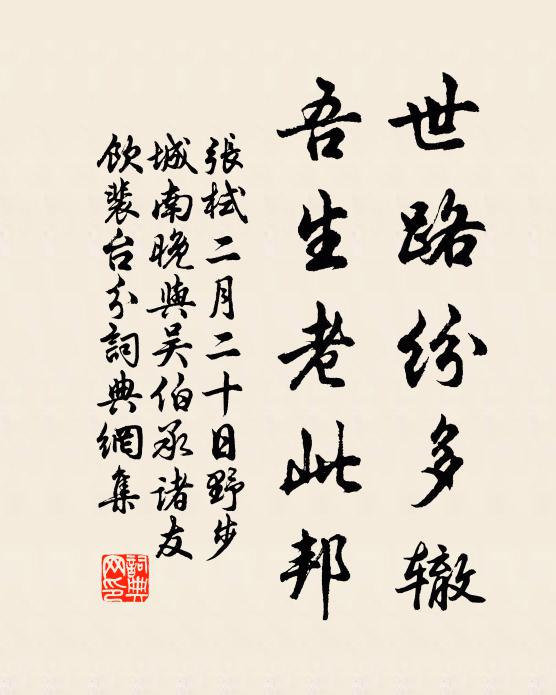 世路纷多辙
吾生老此邦
張栻二月二十日野步
城南晚與吴伯承諸友
飲裴台分詞典網集
詞典
网印